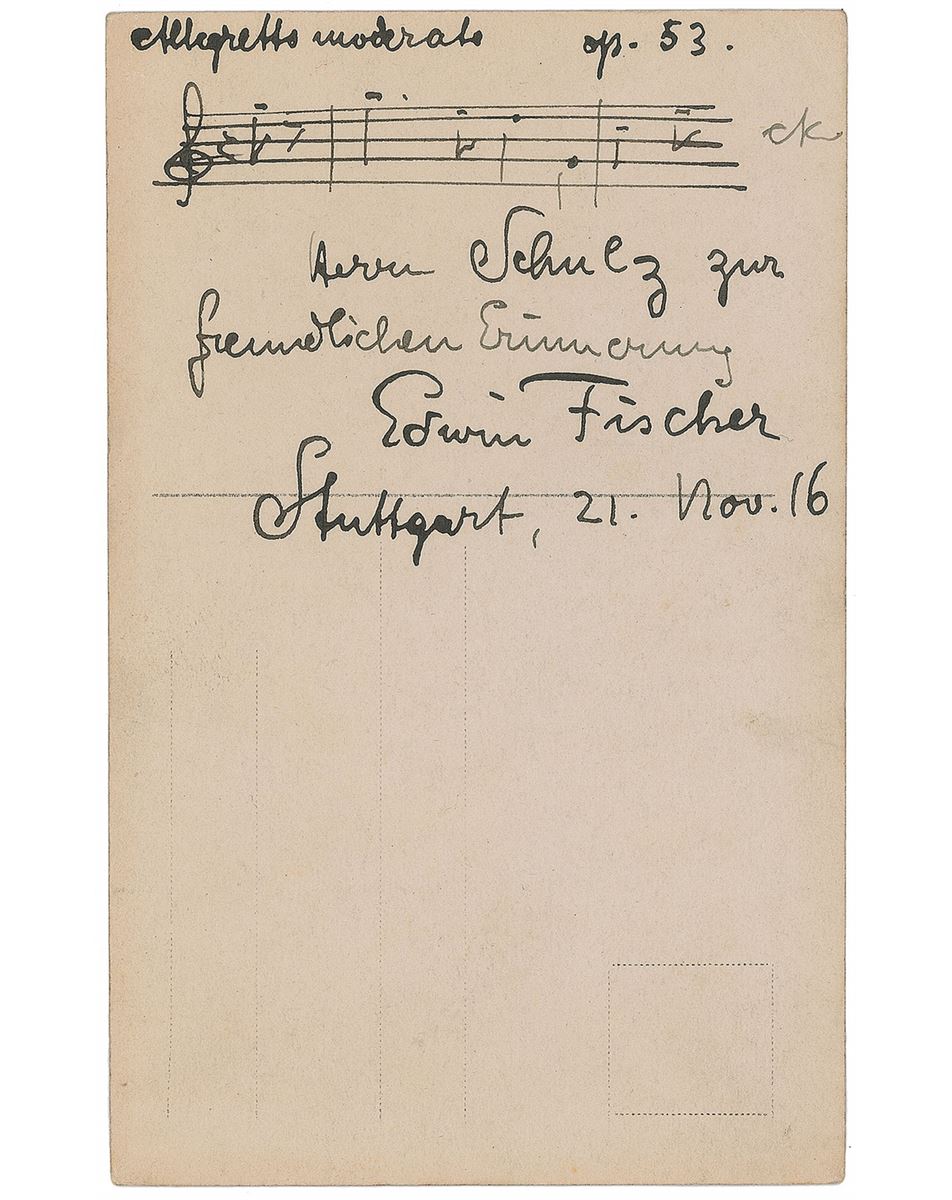 Allegretto moderato op. 53.
etc
Herrn Schulz zur
freundlichen Erinnerung
Edwin Fischer
Stuttgart, 21. Nov. 16